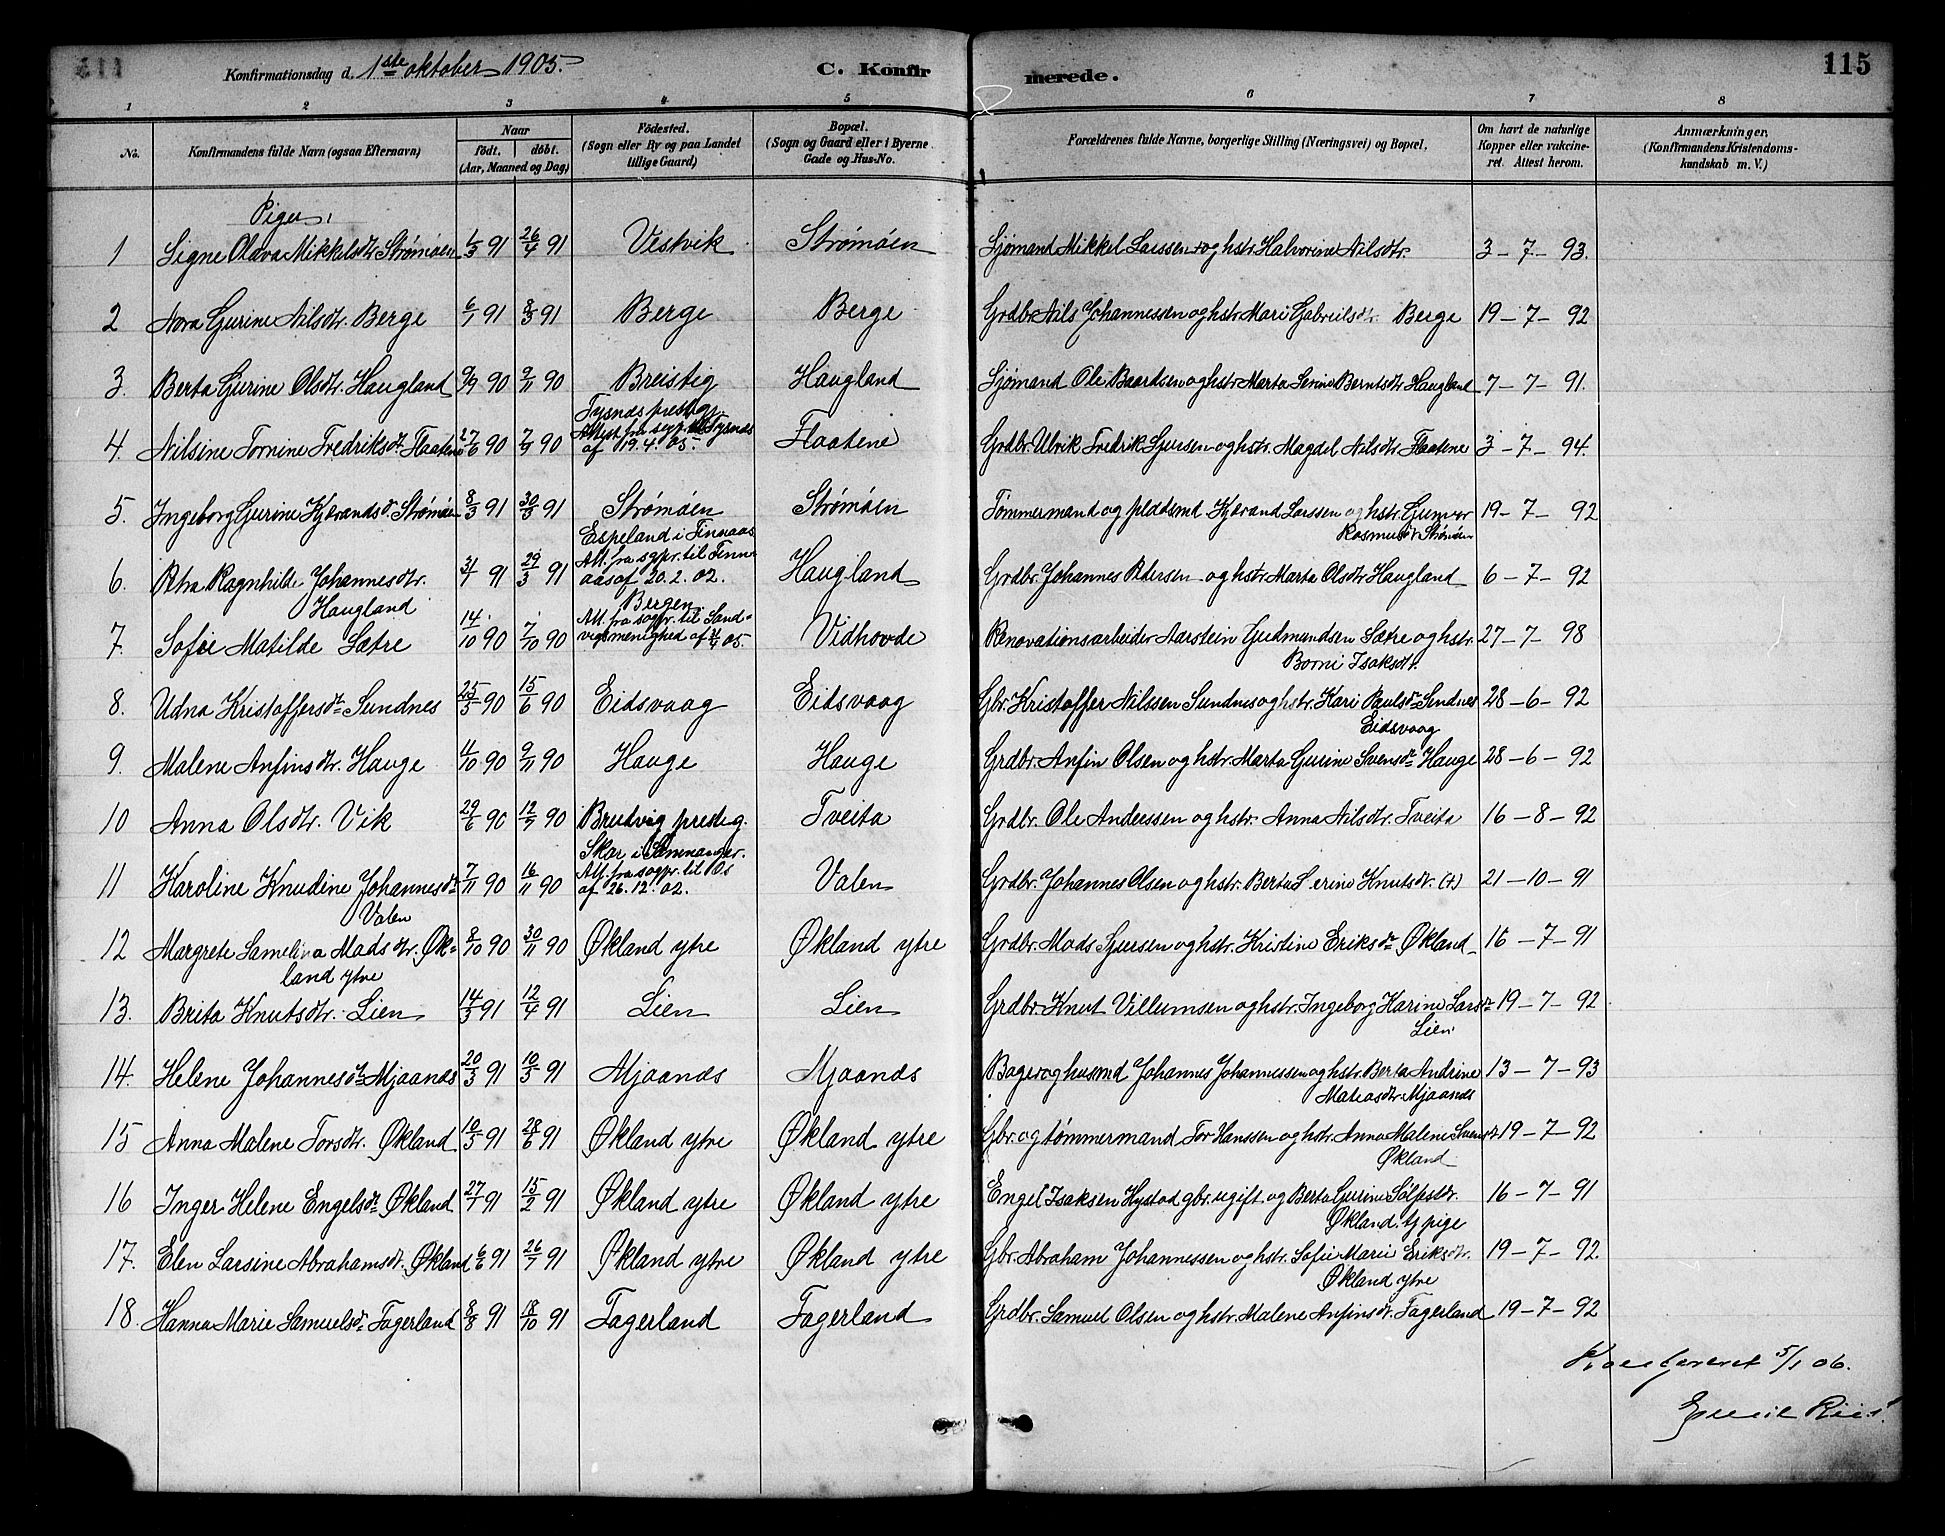 Konfirmationsdag d. 1ste oktober 1905. C. Konfirmerede. 115
1 2 3 4 5 6 7 8
No. Konfirmandens fulde Navn (ogsaa Efternavn) Naar født. døbt. (Aar, Maaned og Dag) Fødested. (Sogn eller By og paa Landet tillige Gaard) Bopæl. (Sogn og Gaard eller i Byerne Gade og Hus-No. Forældrenes fulde Navne, borgerlige Stilling (Næringsvei) og Bopæl. Om havt de naturlige Kopper eller vakcineret. Attest herom. Anmærkninger. (Konfirmandens Kristendomskundskab m. V.)
Piger.
1 Signe Olava Mikkelsdtr Strømøen 1/3 91 26/4 91 Vestvik Strømøen Sjømand Mikkel Larssen og hstr. Halvorine Nilsdtr. 3-7-93.
2 Nora Gurine Nilsdtr. Berge 6/1 91 8/3 91 Berge Berge Grdbr. Nils Johannessen og hstr. Mari Gabrielsdtr. Berge 19-7-92
3. Berta Gurine Olsdtr. Haugland 9/9 90 9/11 90 Breistig Haugland Sjømand Ole Baardsen og hstr. Marta Serine Berntsdtr Haugland 7-7-91.
Tysnes prestegj.
4. Nilsine Tornine Fredriksdt. Flaatene 27/6 90 7/9 90 Attest fra sgpr. til Tysnes af 19.4.05. Flaatene Grdbr. Ulrik Fredrik Sjursen og hstr. Magdel Nilsdtr Flaatene 3-7-94.
5. Ingeborg Gurine Kjerandsdr. Strømøen 8/3 91 30/3 91 Strømøen Strømøen Tømmermand og pladsmd Kjerand Larssen og hstr. Gunvor 19-7-92
Rasmusdt Strømøen
Espeland i Finnaas
6. Petra Ragnhilde Johannesdtr. 31/1 91 29/3 91 Att. fra sgpr. til Finnaas af 20.2.02. Haugland Grdbr. Johannes Pedersen og hstr. Marta Olsdtr Haugland 6-7-92
Haugland Bergen
7. Sofie Matilde Sætre 14/10 90 7/10 90 Att. fra sogpr. til Sandvigsmenighed af 05. Vidhovde Renovationsarbeider Aarstein Gudmundsen Sætre og hstr. 27-7-98
Borni Isaksdtr.
8. Udna Kristoffersdtr Sundnes 25/5 90 15/6 90 Eidsvaag Eidsvaag Gbr. Kristoffer Nilssen Sundnes og hstr. Kari Paulsdr Sundnes 28-6-92
Eidsvaag
9. Malene Anfinsdtr. Hauge 4/10 90 9/11 90 Hauge Hauge Grdbr. Anfin Olsen og hstr. Marta Gurine Svensdtr Hauge 28-6-92
10 Anna Olsdtr. Vik 29/6 90 12/7 90 Brudvig presteg. Tveita Grdbr. Ole Anderssen og hstr. Anna Nilsdtr. Tveita 16-8-92
Skar i Samnanger.
11 Karoline Knudine Johannesdtr 7/11 90 16/11 90 Att. fra sogpr. til Os af 26.12.02. Valen Grdbr. Johannes Olsen og hstr. Berta Serine Knutsdtr. (+) 21-10-91
Valen
12 Margrete Samelina Madsdtr. Økland ytre 8/10 90 30/11 90 Økland ytre Økland ytre Grdbr. Mads Sjursen og hstr. Kristine Eriksdtr Økland 16-7-91
13. Brita Knutsdtr. Lien 14/3 91 12/4 91 Lien Lien Grdbr. Knut Villumsen og hstr. Ingeborg Karine Larsdtr 19-7-92
Lien
14. Helene Johannesdtr Mjaanes 20/3 91 10/5 91 Mjaanes Mjaanes Bager og husmd Johannes Johannessen og hstr. Berta Andrine 13-7-93
Mateasdtr. Mjaanes
15 Anna Malene Torsdtr. Økland 10/5 91 28/6 91 Økland ytre Økland ytre Gbr. og tømmermand Tor Hanssen og hstr. Anna Malene Svensdt 19-7-92
Økland
16 Inger Helene Engelsdtr Økland 27/1 91 15/2 91 Økland ytre Økland ytre Engel Isaksen Hystad gbr. ugift og Berta Gurine Sølfestdr. 16-7-91
Økland. tj. pige
17. Elen Larsine Abrahamsdt. Økland 6/6 91 26/7 91 Økland ytre Økland ytre Gbr. Abraham Johannessen og hstr. Sofie Marie Eriksdtr. 19-7-92.
Økland ytre
18. Hanna Marie Samuelsdtr Fagerland 8/8 91 18/10 91 Fagerland Fagerland Grdbr. Samuel Olsen og hstr. Malene Anfinsdt. Fagerland 19-7-92
Konfereret 5/1 06.
Emil Riis.